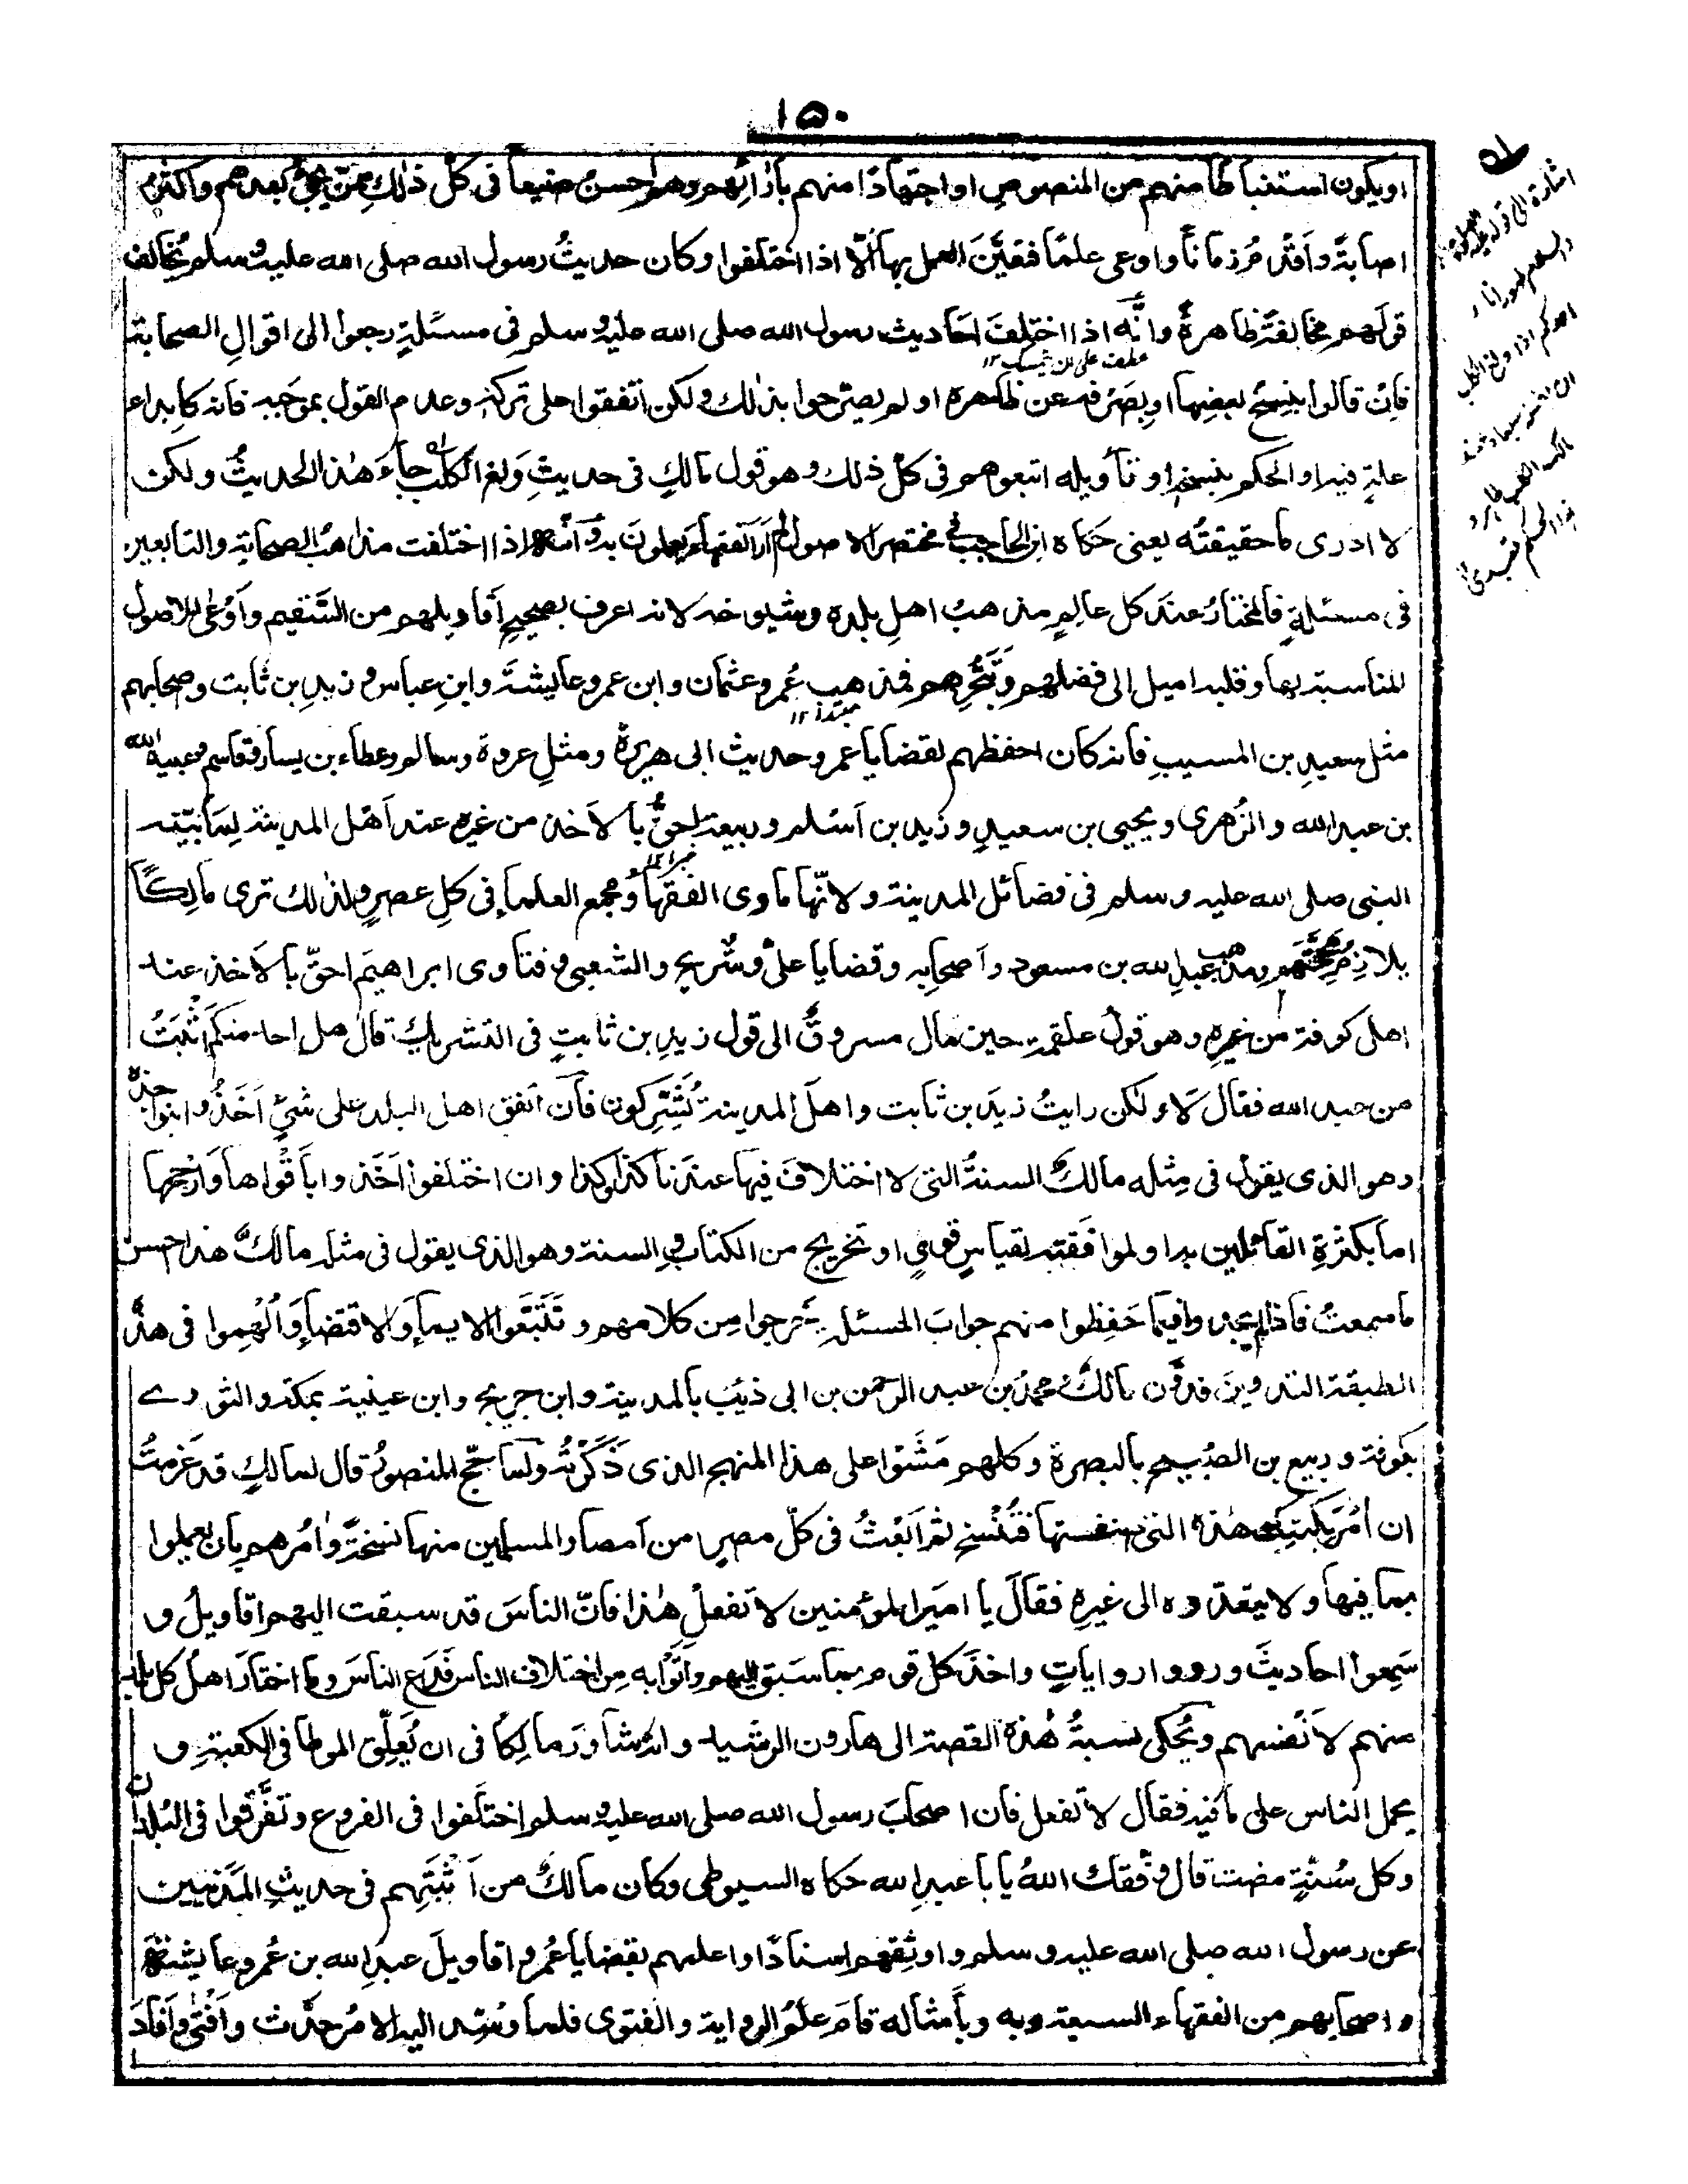 ١٥٠
او يكون استنباطا منهم من المنصوص او اجتهادًا منهم بأرائهم وهم احسن صنيعا فى كل ذلك ممن يجئ بعدهم واكثر
اصابة واقدم زمانا واوعى علمًا فتعيّن العمل بها الّا اذا اختلفوا وكان حديث رسول الله صلى الله عليه وسلم يخالف
قولهم مخالفة ظاهرة وانّه اذا اختلف احاديث رسول الله صلى الله عليه وسلم فى مسئلةٍ رجعوا الى اقوال الصحابة
عطف على ان يتمسك ١٢
فان قالوا بنسخ بعضها او بصرفه عن ظاهره او لم يصرّحوا بذلك ولكن اتفقوا على تركه وعدم القول بموجبه فانه كابداء
علةٍ فيه او الحكم بنسخه او تأويله اتبعوهم فى كل ذلك وهو قول مالكٍ فى حديث ولغ الكلب جاء هذا الحديث ولكن
لا ادرى ما حقيقته يعنى حكاه ابن الحاجب فى مختصر الاصول لم ار الفقهاء يعملون به وانّه اذا اختلفت مذاهب الصحابة والتابعين
فى مسئلةٍ فالمختار عند كل عالمٍ مذهب اهل بلده وشيوخه لانه اعرف بصحيح اقاويلهم من السقيم واوعى للاصول
المناسبة لها وقلبه اميل الى فضلهم وتبحّرهم فمذهب عُمر وعثمان وابن عمر وعايشة وابن عباس وزيد بن ثابت وصحابهم
مبتدا ١٢
مثل سعيد بن المسيب فانه كان احفظهم لقضايا عمر وحديث ابى هريرة ومثل عروة وسالم وعطاء بن يسار وقاسم وعبيد الله
بن عبد الله والزهرى ويحيى بن سعيدٍ وزيد بن اسلم وربيعة احقّ بالاخذ من غيره عند اهل المدينة لما بيّنه
خبر ١٢
النبى صلى الله عليه وسلم فى فضائل المدينة ولانّها ماوى الفقها ومجمع العلماء فى كل عصرٍ ولذلك ترى مالكًا
يلازم محجّتهم ومذهب عبد الله بن مسعود واصحابه وقضايا علىّ وشريح والشعبى وفتاوى ابراهيم احقّ بالاخذ عند
اهل كوفة من غيره وهو قول علقمة حين مال مسروقٌ الى قول زيد بن ثابتٍ فى التشريك قال هل احد منكم اثبت
من عبد الله فقال لا ولكن رايت زيد بن ثابت واهل المدينة يُشرّكون فان اتفق اهل البلد على شئٍ اخذوا بنواجذه
وهو الذى يقول فى مثله مالكٌ السنة التى لا اختلاف فيها عندنا كذا وكذا وان اختلفوا اخذوا باقواها وارجحها
اما بكثرة القائلين به او لموافقته لقياسٍ قوىٍ او تخريج من الكتاب والسنة وهو الذى يقول فى مثله مالكٌ هذا احسن
ما سمعت فاذا لم يجدوا فيما حفظوا منهم جواب المسئلة خرجوا من كلامهم وتتبّعوا الايماء والاقتضاء وألهموا فى هذه
الطبقة التدوين فدوّن مالك ومحمد بن عبد الرحمن بن ابى ذئب بالمدينة وابن جريج وابن عينية بمكة والثورے
بكوفة وربيع بن الصُبيح بالبصرة وكلهم مشوا على هذا المنهج الذى ذكرته ولما حجّ المنصور قال لمالكٍ قد عزمت
ان اٰمر بكتبك هذه التى صنفتها فتُنسخ ثم ابعث فى كلّ مصرٍ من امصار المسلمين منها نسخةً واٰمرهم بان يعملوا
بما فيها ولا يتعدّوه الى غيره فقال يا امير المؤمنين لا تفعل هذا فانّ الناس قد سبقت اليهم اقاويل و
سمعوا احاديث ورووا رواياتٍ واخذ كل قوم بما سبق اليهم واتوا به من اختلاف الناس فدع الناس وما اختار اهل كل بلد
منهم لانفسهم ويُحكى نسبة هذه القصة الى هارون الرشيد وانه شاور مالكًا فى ان يُعلّق الموطا فى الكعبة و
يحمل الناس على ما فيه فقال لا تفعل فان اصحاب رسول الله صلى الله عليه وسلم اختلفوا فى الفروع وتفرّقوا فى البلدان
وكل سُنّةٍ مضت قال وفّقك الله يابا عبد الله حكاه السيوطى وكان مالكٌ من اثبتهم فى حديث المدنيين
عن رسول الله صلى الله عليه وسلم واوثقهم اسنادًا واعلمهم بقضايا عُمر واقاويل عبد الله بن عُمر وعايشة
واصحابهم من الفقهاء السبعة وبه وبأمثاله قام علم الرواية والفتوى فلما وُسّد اليه الامر حدّث وافتى وافاد
اشارة الى قوله عليه الصلوة
والسلام طهور اناء
احدكم اذا ولغ الكلب